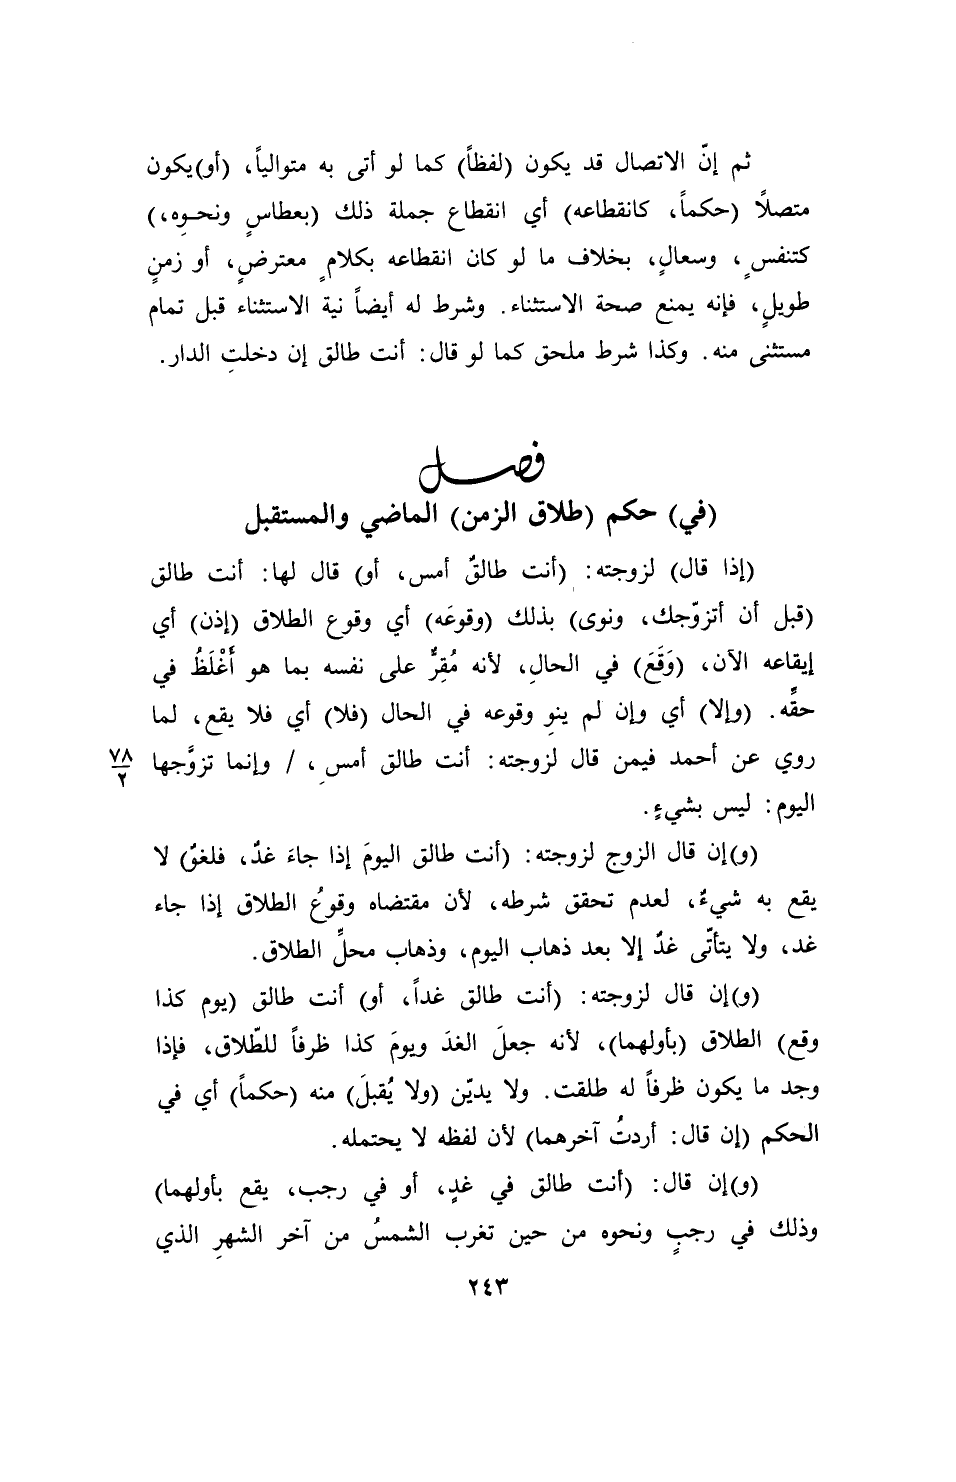 ثم إنّ الاتصال قد يكون (لفظاً) كما لو أتى به متوالياً، (أو)يكون
متصلاً (حكماً، كانقطاعه) أي انقطاع جملة ذلك (بعطاسٍ ونحوِه،)
كتنفسٍ، وسعالٍ، بخلاف ما لو كان انقطاعه بكلامٍ معترضٍ، أو زمنٍ
طويلٍ، فإنه يمنع صحة الاستثناء. وشرط له أيضاً نية الاستثناء قبل تمام
مستثنى منه. وكذا شرط ملحق كما لو قال: أنت طالق إن دخلتِ الدار.
فصل
(في) حكم (طلاق الزمن) الماضي والمستقبل
(إذا قال) لزوجته: (أنت طالقٌ أمس، أو) قال لها: أنت طالق
(قبل أن أتزوّجك، ونوى) بذلك (وقوعَه) أي وقوع الطلاق (إذن) أي
إيقاعه الآن، (وَقَعَ) في الحالِ، لأنه مُقِرٌّ على نفسه بما هو أَغْلَظُ في
حقِّه. (وإلا) أي وإن لم ينوِ وقوعه في الحال (فلا) أي فلا يقع، لما
روي عن أحمد فيمن قال لزوجته: أنت طالق أمسِ، / وإنما تزوَّجها
٧٨
٢
اليوم: ليس بشيءٍ.
(و)إن قال الزوج لزوجته: (أنت طالق اليومَ إذا جاءَ غدٌ، فلغوٌ) لا
يقع به شيءٌ، لعدم تحقق شرطه، لأن مقتضاه وقوعُ الطلاق إذا جاء
غد، ولا يتأتّى غدٌ إلا بعد ذهاب اليوم، وذهاب محلِّ الطلاق.
(و)إن قال لزوجته: (أنت طالق غداً، أو) أنت طالق (يوم كذا
وقع) الطلاق (بأولهما)، لأنه جعلَ الغدَ ويومَ كذا ظرفاً للطّلاق، فإذا
وجد ما يكون ظرفاً له طلقت. ولا يديّن (ولا يُقبلَ) منه (حكماً) أي في
الحكم (إن قال: أردتُ آخرهما) لأن لفظه لا يحتمله.
(و)إن قال: (أنت طالق في غدٍ، أو في رجب، يقع بأولهما)
وذلك في رجبٍ ونحوه من حين تغرب الشمسُ من آخر الشهرِ الذي
٢٤٣